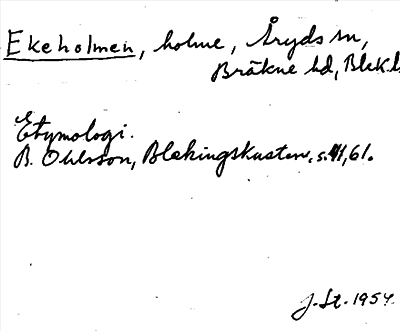 Ekeholmen, holme, Åryds sn,
Bräkne hd, Blek.l.
Etymologi.
B. Ohlsson, Blekingskusten, s. 41, 61.
J. St. 1954.